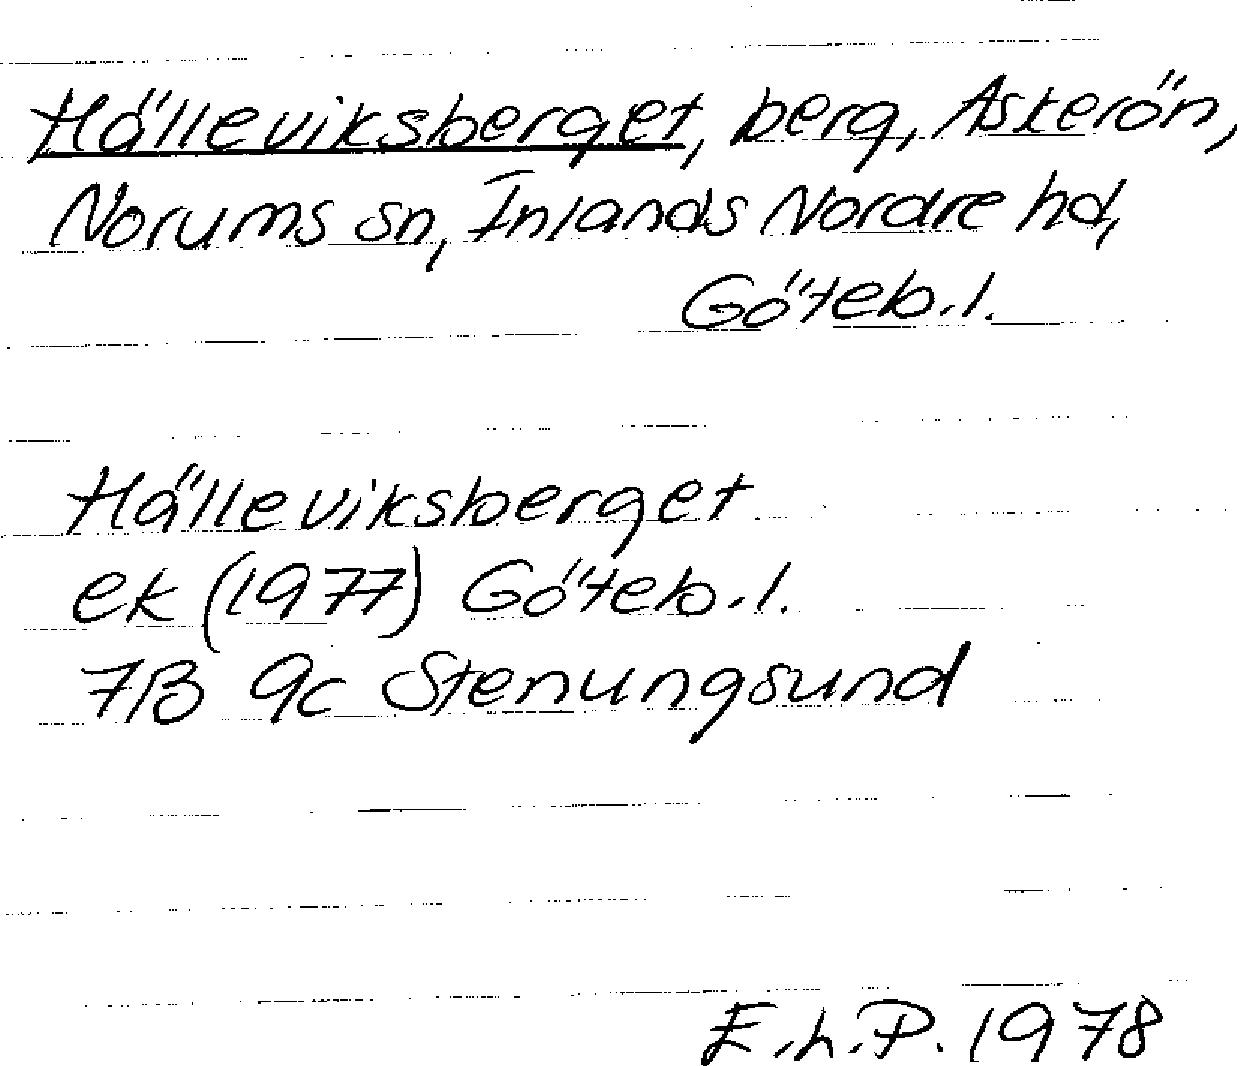 Hälleviksberget, berg, Askerön,
Norums sn, Inlands Nordre hd,
Göteb.l.
Hälleviksberget
ek (1977) Göteb.l.
7B 9c Stenungsund
E.h.P. 1978